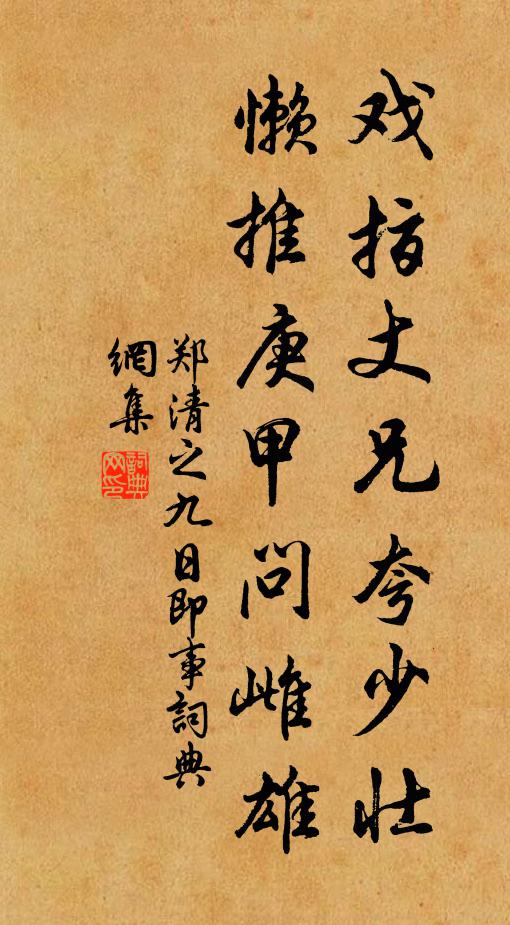 戏指丈兄夸少壮
懒推庚甲问雌雄
郑清之九日即事詞典
網集
詞典
网印